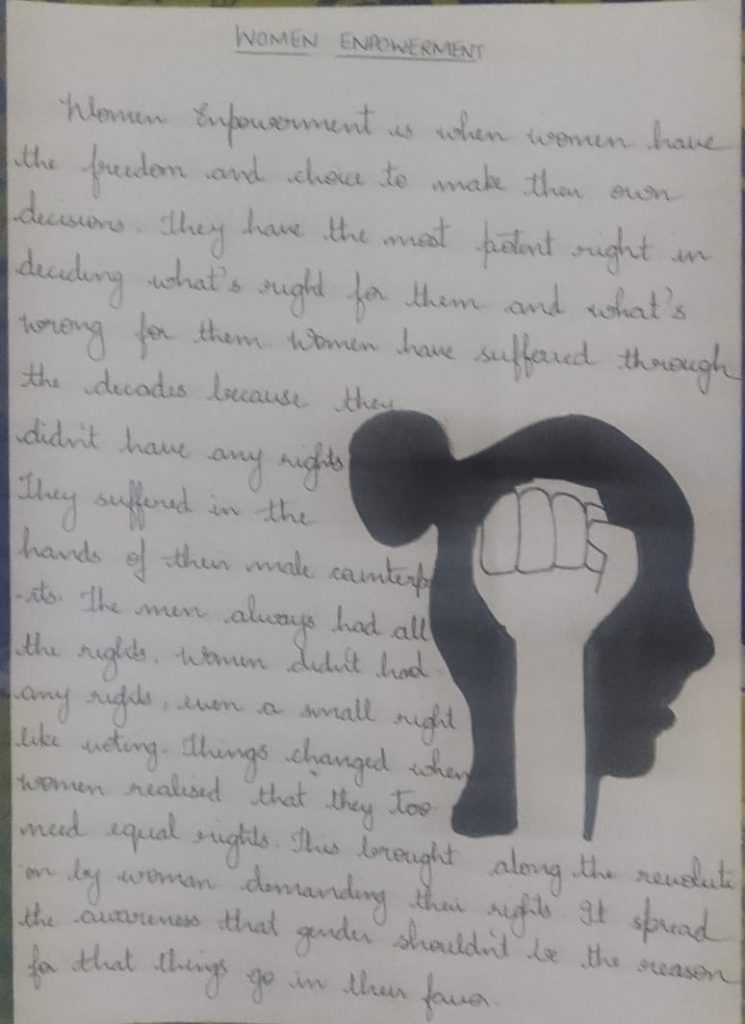 WOMEN ENPOWERMENT
Women Enpowerment is when women have
the freedom and choice to make their own
decisions. They have the most potent right in
deciding what's right for them and what's
wrong for them. Women have suffered through
the decades because they
didn't have any rights
They suffered in the
hands of their male counterp
-rts. The men always had all
the rights. Women didn't had
any rights, even a small right
like voting. Things changed when
women realised that they too
need equal rights. This brought along the revoluti
on by woman demanding their rights. It spread
the awareness that gender shouldn't be the reason
for that things go in their favor.